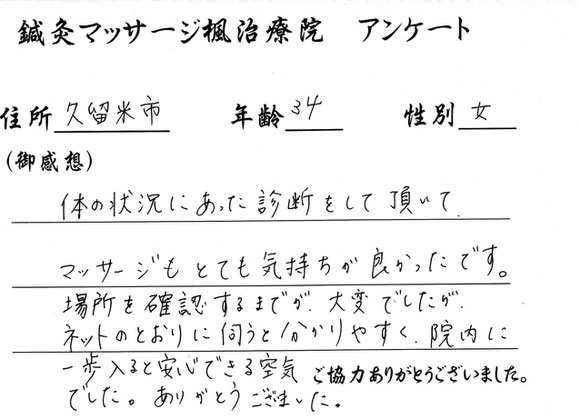 鍼灸マッサージ楓治療院 アンケート
住所 久留米市 年齢 34 性別 女
(御感想)
体の状況にあった診断をして頂いて、
マッサージもとても気持ちが良かったです。
場所を確認するまでが、大変でしたが、
ネットのとおりに伺うと分かりやすく、院内に
一歩入ると安心できる空気
でした。ありがとうございました。
ご協力ありがとうございました。